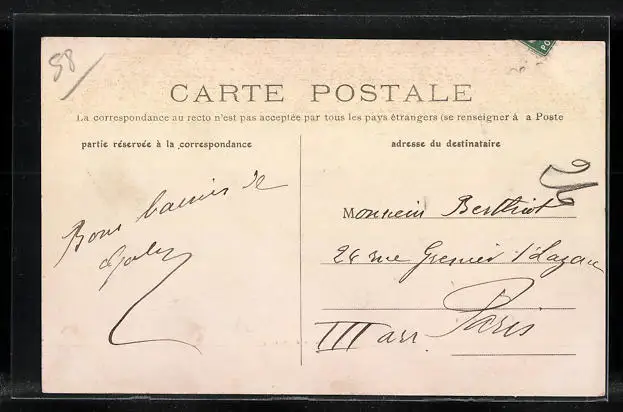 58
CARTE POSTALE
La correspondance au recto n'est pas acceptée par tous les pays étrangers (se renseigner à a Poste
partie réservée à la correspondance
adresse du destinataire
Bons baisers de
Monsieur Berthiot
24 rue Grenier St Lazare
Paris
III arr